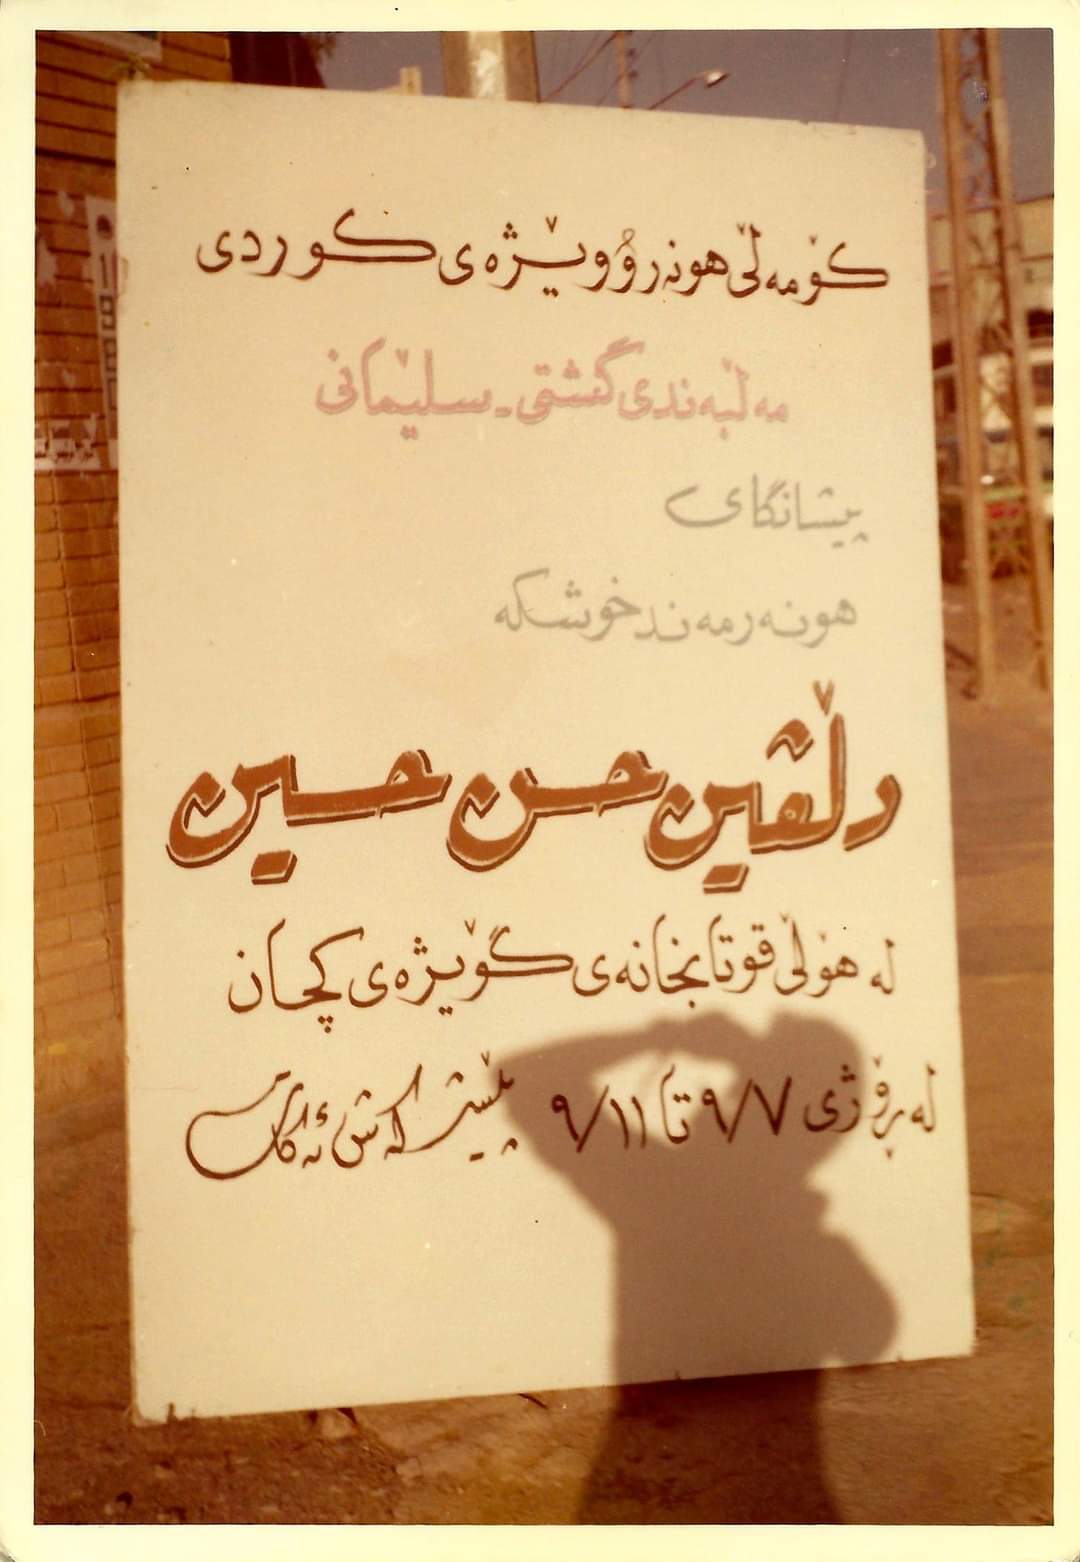 کۆمەڵێ هونەر ۆو وێژەی کوردی
مەڵبەندی گشتی - سلێمانی
پیشانگای
هونەرمەند خوشکە
دڵڤین حسن حسین
لە هۆڵی قوتابخانەی گۆیژەی کچان
لە ڕۆژی ٩/٧ تا ٩/١١ پێشکەش ئەکات